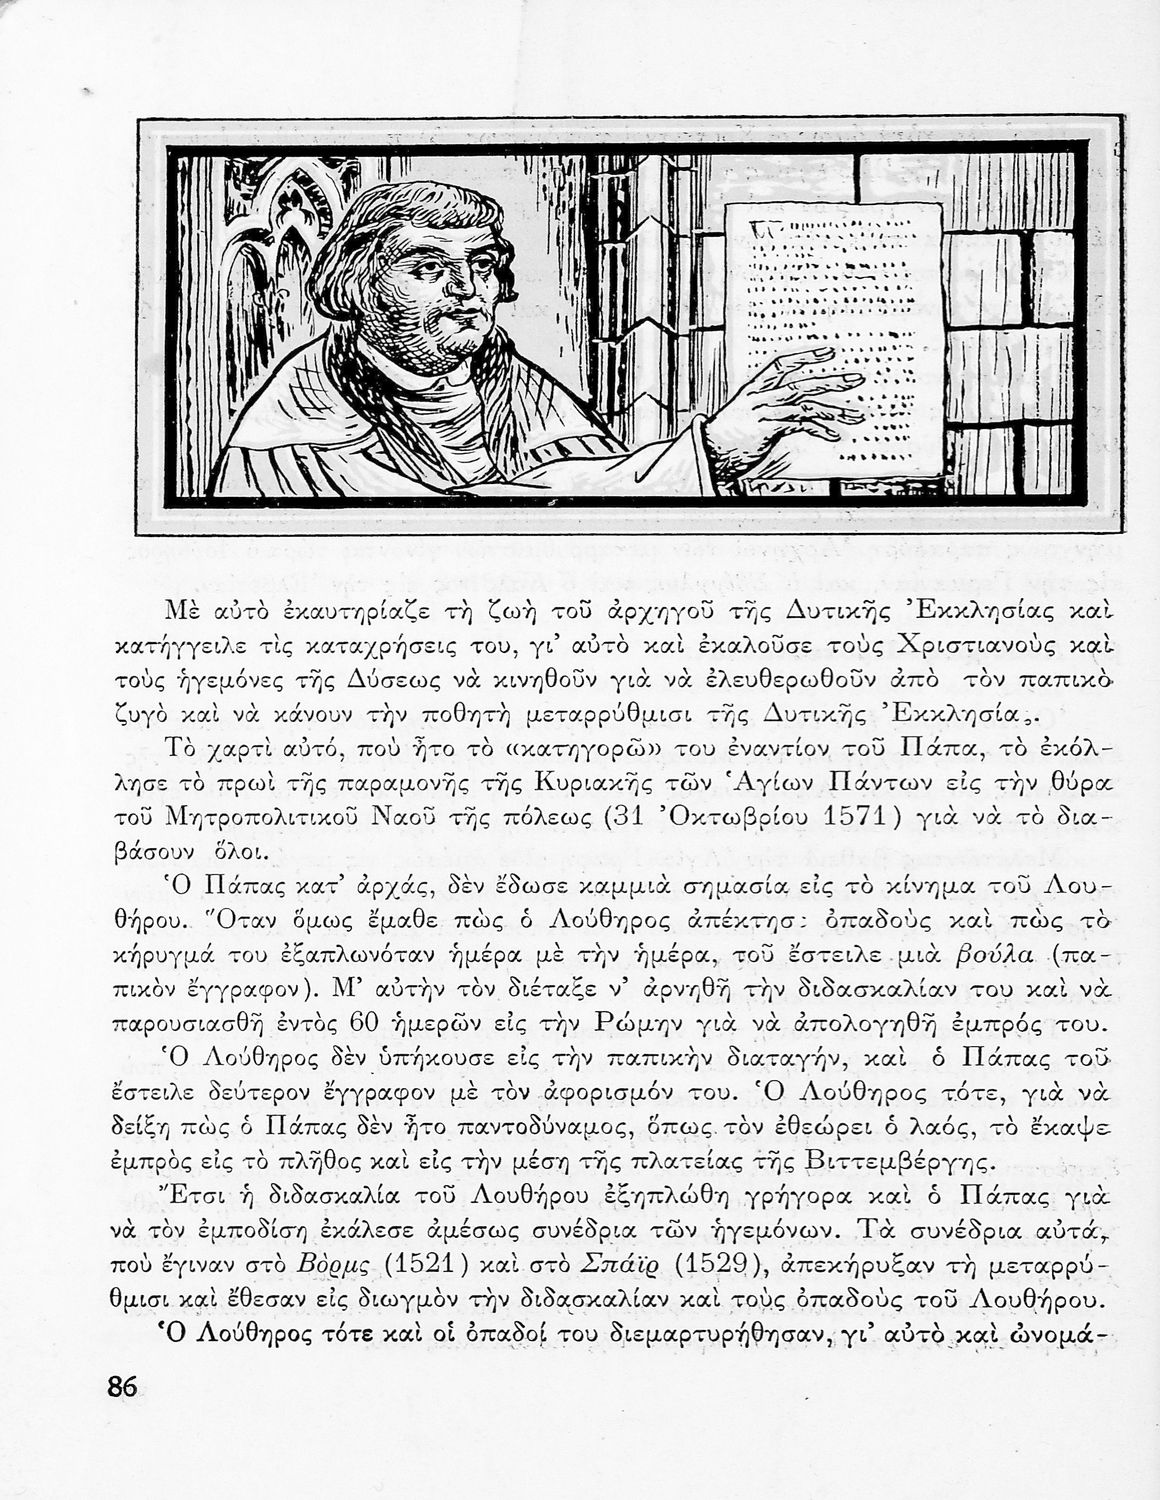 Μὲ αὐτὸ ἐκαυτηρίαζε τὴ ζωὴ τοῦ ἀρχηγοῦ τῆς Δυτικῆς Ἐκκλησίας καὶ
κατήγγειλε τὶς καταχρήσεις του, γι’ αὐτὸ καὶ ἐκαλοῦσε τοὺς Χριστιανοὺς καὶ
τοὺς ἡγεμόνες τῆς Δύσεως νὰ κινηθοῦν γιὰ νὰ ἐλευθερωθοῦν ἀπὸ τὸν παπικὸ
ζυγὸ καὶ νὰ κάνουν τὴν ποθητὴ μεταρρύθμισι τῆς Δυτικῆς Ἐκκλησίας.
Τὸ χαρτὶ αὐτό, ποὺ ἦτο τὸ «κατηγορῶ» του ἐναντίον τοῦ Πάπα, τὸ ἐκόλ-
λησε τὸ πρωὶ τῆς παραμονῆς τῆς Κυριακῆς τῶν Ἁγίων Πάντων εἰς τὴν θύρα
τοῦ Μητροπολιτικοῦ Ναοῦ τῆς πόλεως (31 Ὀκτωβρίου 1571) γιὰ νὰ τὸ δια-
βάσουν ὅλοι.
Ὁ Πάπας κατ’ ἀρχάς, δὲν ἔδωσε καμμιὰ σημασία εἰς τὸ κίνημα τοῦ Λου-
θήρου. Ὅταν ὅμως ἔμαθε πὼς ὁ Λούθηρος ἀπέκτησε ὀπαδοὺς καὶ πὼς τὸ
κήρυγμά του ἐξαπλωνόταν ἡμέρα μὲ τὴν ἡμέρα, τοῦ ἔστειλε μιὰ βούλα (πα-
πικὸν ἔγγραφον). Μ’ αὐτὴν τὸν διέταξε ν’ ἀρνηθῆ τὴν διδασκαλίαν του καὶ νὰ
παρουσιασθῆ ἐντὸς 60 ἡμερῶν εἰς τὴν Ρώμην γιὰ νὰ ἀπολογηθῆ ἐμπρός του.
Ὁ Λούθηρος δὲν ὑπήκουσε εἰς τὴν παπικὴν διαταγήν, καὶ ὁ Πάπας τοῦ
ἔστειλε δεύτερον ἔγγραφον μὲ τὸν ἀφορισμόν του. Ὁ Λούθηρος τότε, γιὰ νὰ
δείξη πὼς ὁ Πάπας δὲν ἦτο παντοδύναμος, ὅπως τὸν ἐθεώρει ὁ λαός, τὸ ἔκαψε
ἐμπρὸς εἰς τὸ πλῆθος καὶ εἰς τὴν μέση τῆς πλατείας τῆς Βιττεμβέργης.
Ἔτσι ἡ διδασκαλία τοῦ Λουθήρου ἐξηπλώθη γρήγορα καὶ ὁ Πάπας γιὰ
νὰ τὸν ἐμποδίση ἐκάλεσε ἀμέσως συνέδρια τῶν ἡγεμόνων. Τὰ συνέδρια αὐτά,
ποὺ ἔγιναν στὸ Βὸρμς (1521) καὶ στὸ Σπάϊρ (1529), ἀπεκήρυξαν τὴ μεταρρύ-
θμισι καὶ ἔθεσαν εἰς διωγμὸν τὴν διδασκαλίαν καὶ τοὺς ὀπαδοὺς τοῦ Λουθήρου.
Ὁ Λούθηρος τότε καὶ οἱ ὀπαδοί του διεμαρτυρήθησαν, γι’ αὐτὸ καὶ ὠνομά-
86